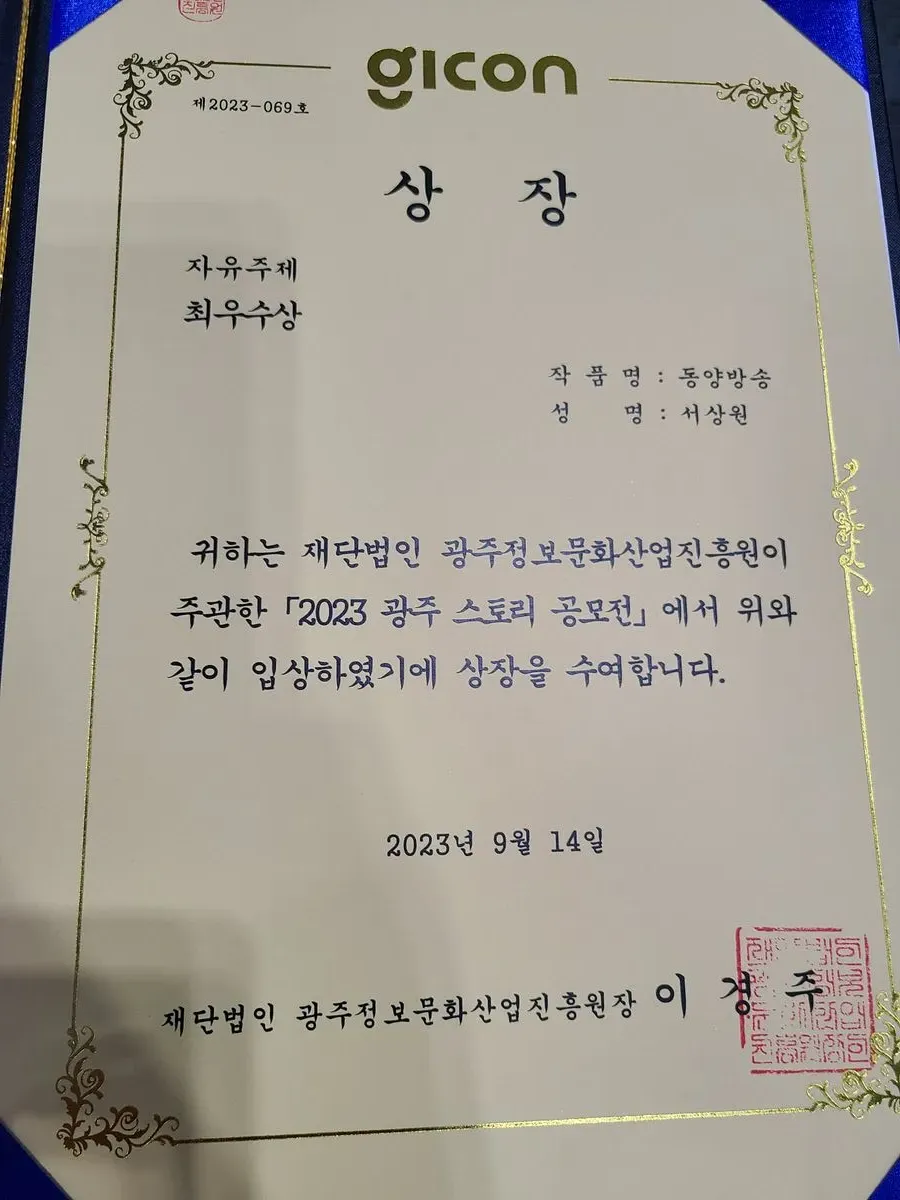 gicon
제2023-069호
상 장
자유주제
최우수상
작 품 명 : 동양방송
성 명 : 서상원
귀하는 재단법인 광주정보문화산업진흥원이
주관한 「2023 광주 스토리 공모전」에서 위와
같이 입상하였기에 상장을 수여합니다.
2023년 9월 14일
재단법인 광주정보문화산업진흥원장 이 경 주